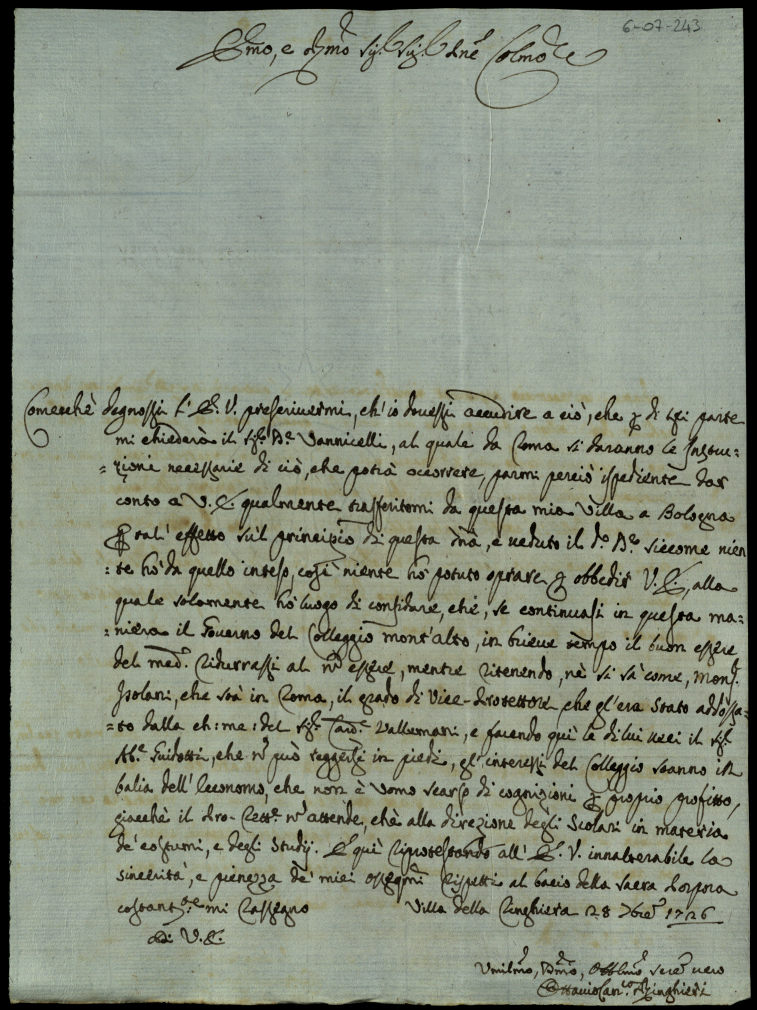 6-07-243
Emo, e Rmo Sig.r Sig.r Pne Colmo
Comecchè degnossi l'E. V. prescrivermi, ch'io dovessi accudire a ciò, che p di lei parte
mi chiederà il Sig.r Vannicelli, al quale da Roma si daranno le Instru=
=zioni necessarie di ciò, che potrà occorrere, parmi perciò ispediente dar
conto a V. E. qualmente trasferitomi da questa mia Villa a Bologna
p tal' effetto sul principio di questa, e veduto il d.o siccome nien
=te hò da quello inteso, così niente hò potuto oprare p obbedir V. E., alla
quale solamente hò luogo di confidare, che, se continuasi in questa ma=
niera il Governo del Colleggio mont'alto, in brieve tempo il buon essere
del med.o ridurrassi al nñ essere, mentre ritenendo, nè si sà come, Mons.r
Isolani, che stà in Roma, il grado di Vice-Protettore, che gl'era stato addossa=
=to dalla ch: me: del Sig.r Card.e Vallemani, e facendo quì le di lui veci il Sig.r
Ab.e Guidotti, che nñ può reggersi in piedi, gl'interessi del Colleggio stanno in
balia dell'Economo, che non è Uomo scarso di cognizioni p proprio profitto,
giacchè il Pro-Rett.e nñ attende, chè alla direzione degli Scolari in materia
de' costumi, e degli Studij. E quì riprotestando all'E. V. innalterabile la
sincerità, e pienezza de' miei osseqmi rispetti al bacio della Sacra Porpora
costantte mi rassegno Villa della Ringhiera 28 7bre 1726
Di V. E.
Umilmo, Dmo, Obblmo Serre vero
Ottavio Can.co Ringhieri